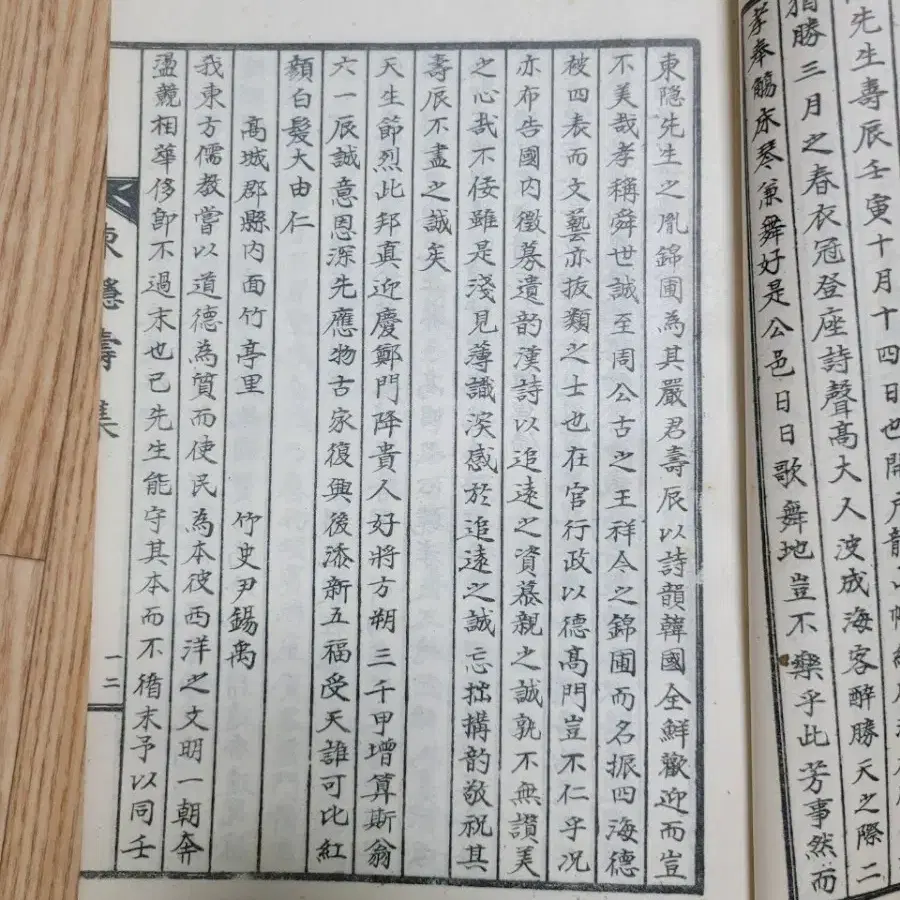 先生壽辰壬寅十月十四日也開戶龍山
猶勝三月之春衣冠登座詩聲高大人波成海客醉勝天之際二
孝奉觴床琴兼舞好是公邑日日歌舞地豈不樂乎此芳事然而
東隐先生之胤錦圃為其嚴君壽辰以詩韻韓國全鮮歡迎而豈
不美哉孝稱舜世誠至周公古之王祥今之錦圃而名振四海德
被四表而文藝亦拔類之士也在官行政以德高門豈不仁乎况
亦布告國内徵募遺韵漢詩以追遠之資慕親之誠孰不無讚美
之心哉不倭雖是淺見薄識深感於追遠之誠忘拙搆韵敬祝其
壽辰不盡之誠矣
天生節烈此邦真迎慶鄭門降貴人好將方朔三千甲增算斯翁
六一辰誠意恩深先應物古家復興後添新五福受天誰可比紅
顔白髮大由仁
高城郡縣内面竹亭里 竹史尹錫禹
我東方儒教嘗以道德為質而使民為本彼西洋之文明一朝奔
盪競相華侈卽不過末也已先生能守其本而不循末予以同壬
東隱壽集
一二